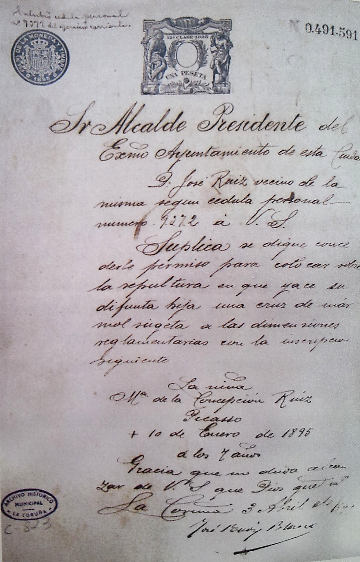 Nº 0.491.591
12ª CLASE 1895
UNA PESETA
Sr Alcalde Presidente del
Exmo Ayuntamiento de esta Ciudad
D. José Ruiz vecino de la
misma segun cedula personal
numero 9272 á V. S.
Suplica se digne conce
derle permiso para colocar sobre
la sepultura en que yace su
difunta hija una cruz de már
mol sugeta a las dimensiones
reglamentarias con la inscripcion
siguiente
La niña
Mª de la Concepcion Ruiz
Picasso
+ 10 de Enero de 1895
a los 7 años
Gracia que no duda alcan
zar de V. S. que Dios gue mª
La Coruña 3 Abril de 1895
José Ruiz Blasco
ARCHIVO HISTORICO
MUNICIPAL
LA CORUÑA